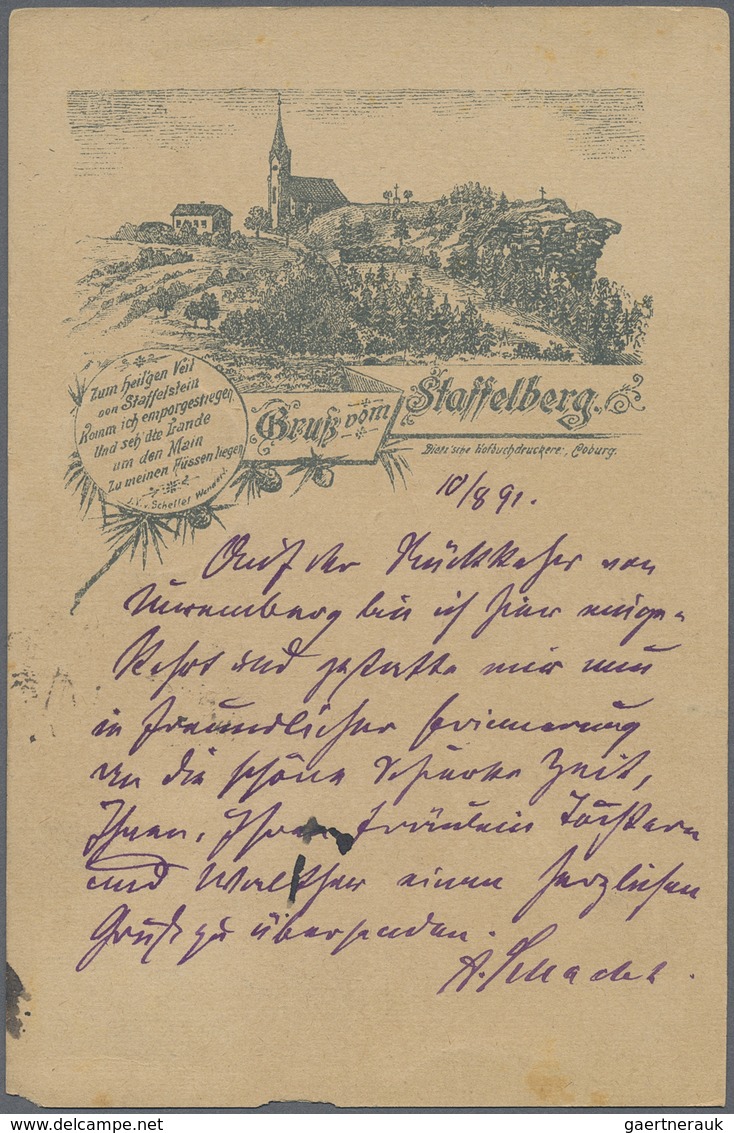 Zum heil'gen Veit
von Staffelstein
Komm ich emporgestiegen
Und seh' die Lande
um den Main
Zu meinen Füssen liegen
J. V. v. Scheffel
Gruß vom
Staffelberg.
Dietz'sche Hofbuchdruckerei, Coburg.
10/8 91.
Auf der Rückkehr von
Nuremberg bin ich hier einge-
kehrt und gestatte mir nun
in freundlicher Erinnerung
an die schöne Zeit,
Ihnen, Ihren Fräulein Töchtern
und Walther einen herzlichen
Gruß zu übersenden.
A.
gaertnerauk